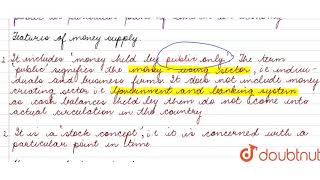 Features of money supply.
1. It includes 'money held by public only'. The term
'public' signifies the money - using sector, i.e indivi-
duals and business firms. It does not include money
creating sector i.e. Government and banking system
as cash balances held by them do not come into
actual circulation in the country
2. It is a 'stock concept', i.e it is concerned with a
particular point in time.
doubtnut